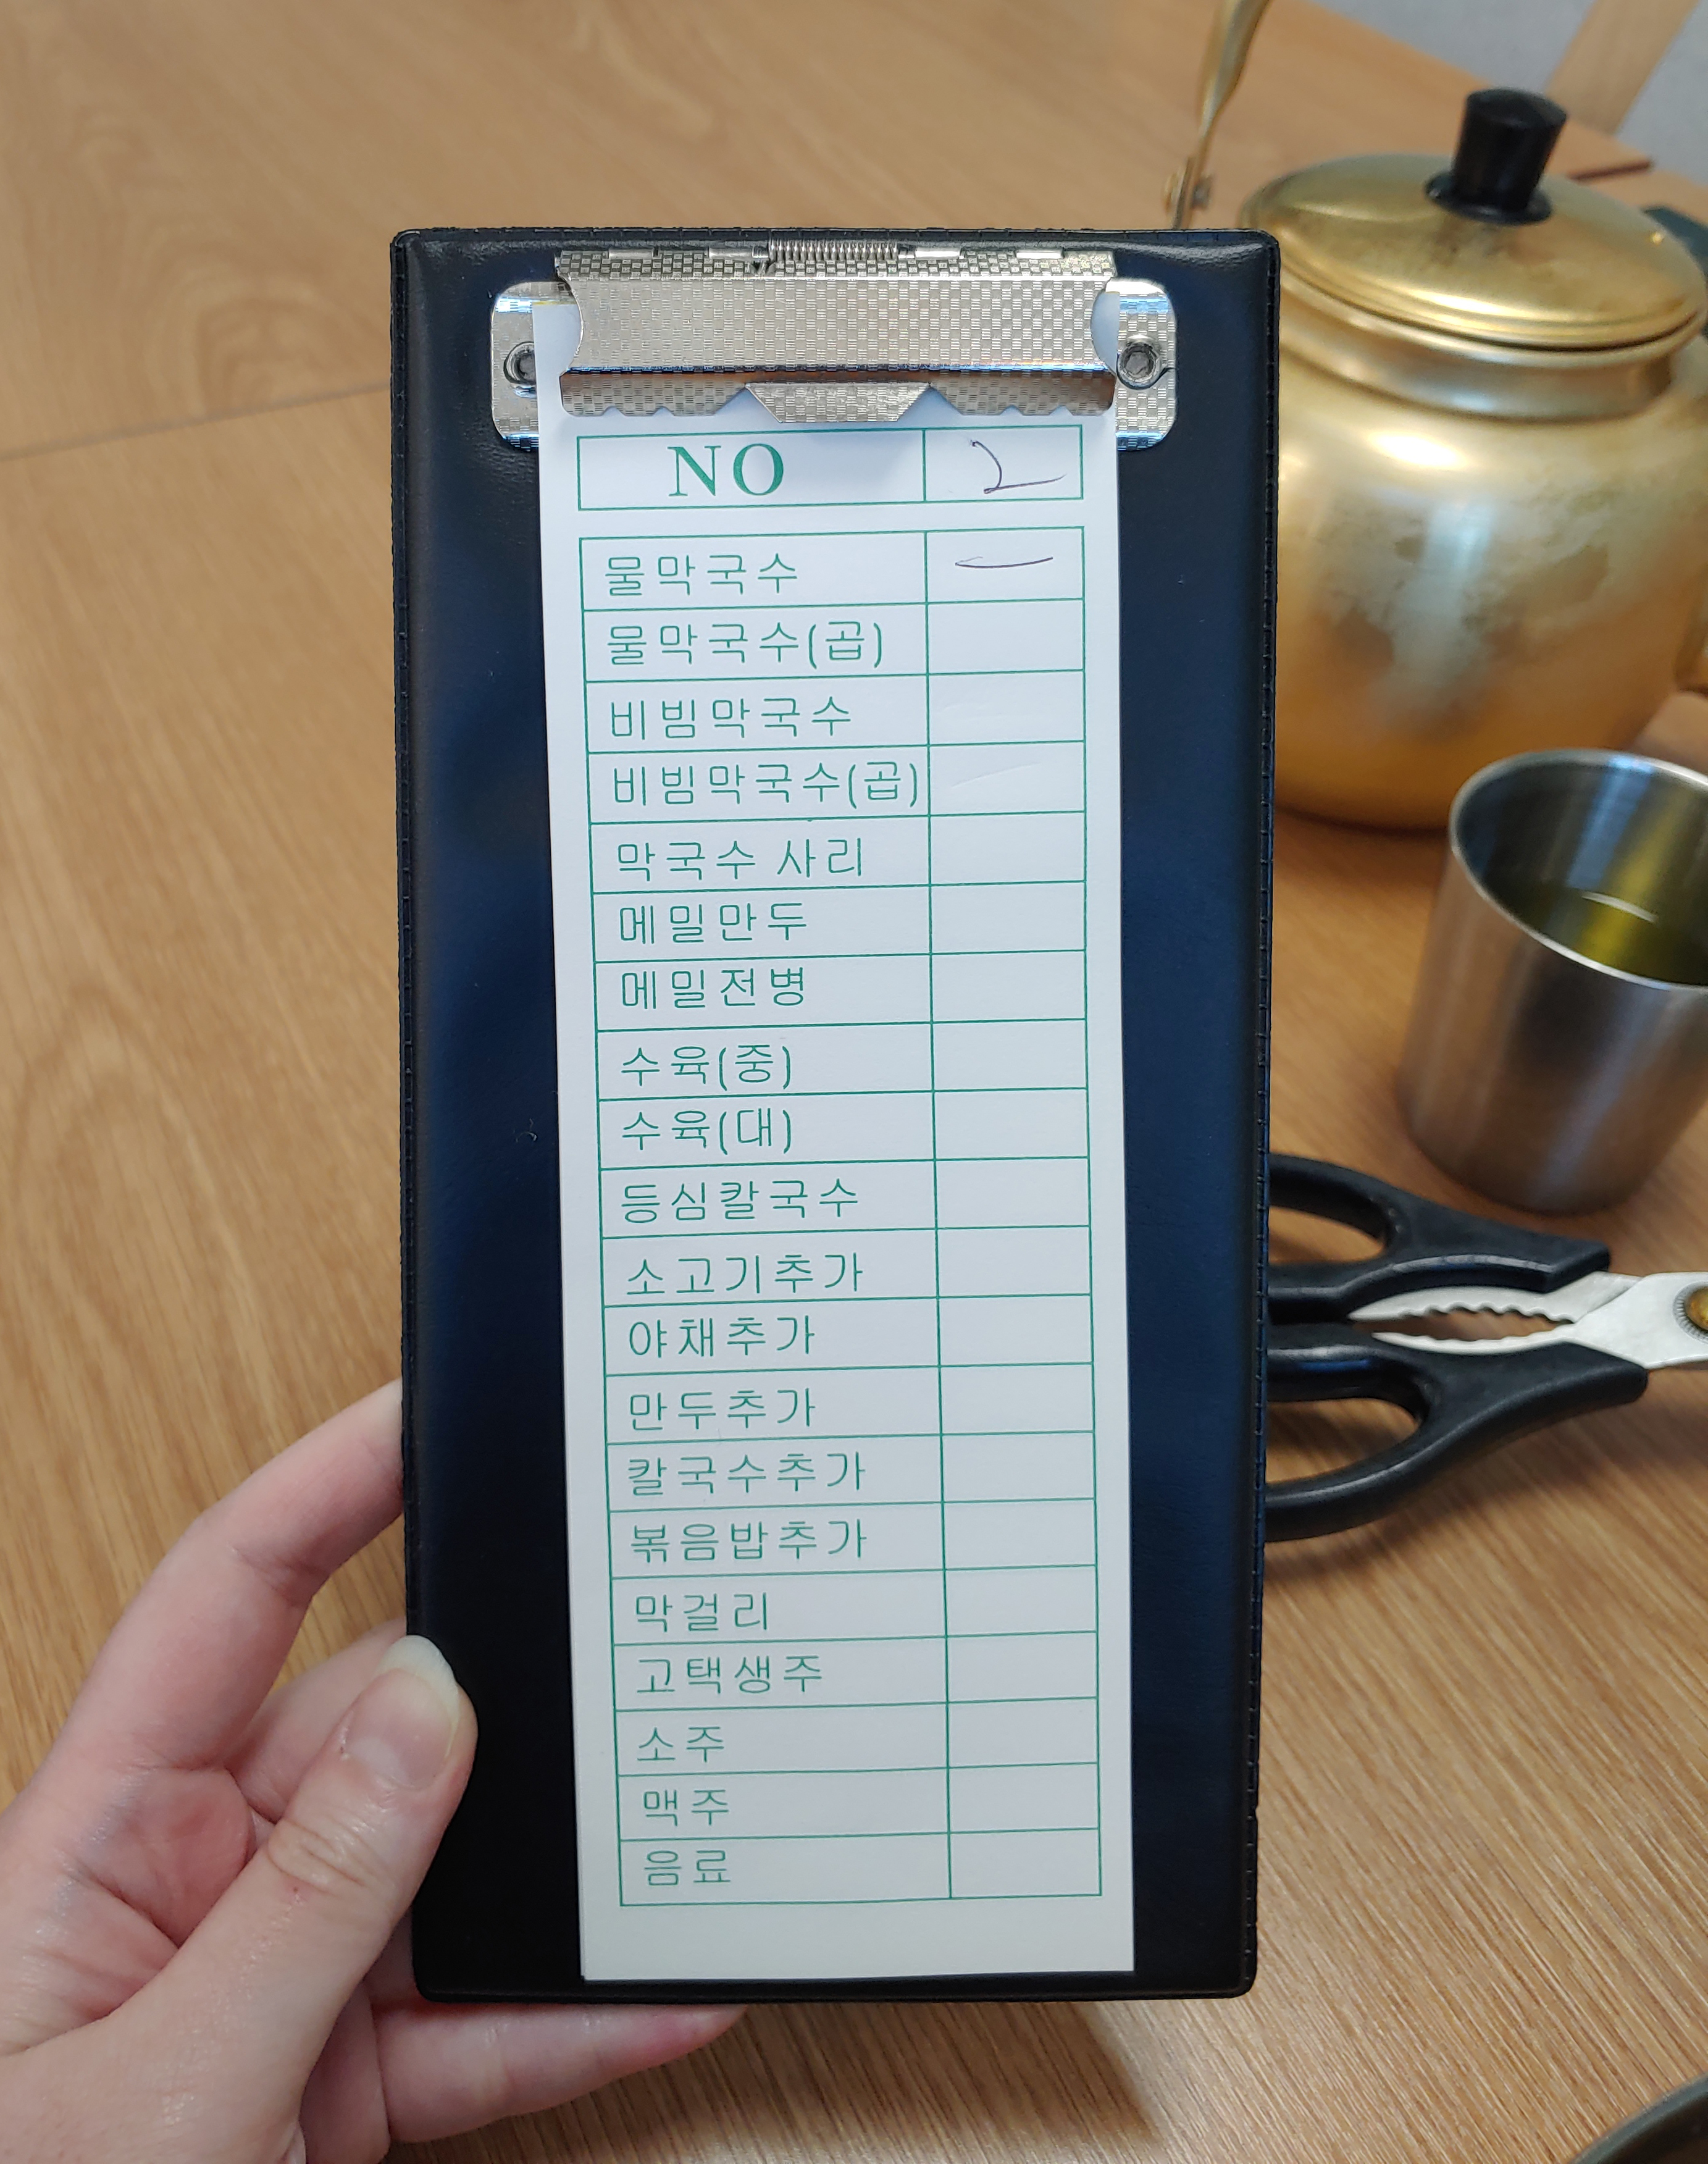 NO 2
물막국수 一
물막국수(곱)
비빔막국수
비빔막국수(곱)
막국수 사리
메밀만두
메밀전병
수육(중)
수육(대)
등심칼국수
소고기추가
야채추가
만두추가
칼국수추가
볶음밥추가
막걸리
고택생주
소주
맥주
음료